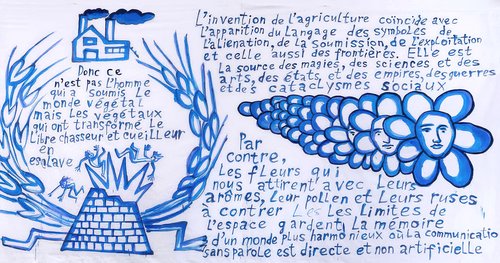 Donc ce
n'est pas L'homme
qui a soumis Le
monde végétal
mais Les végétaux
qui ont transformé Le
Libre chasseur et cueilleur
en
esclave
L'invention de l'agriculture coïncide avec
l'apparition du Langage des symboles de
l'aliénation, de la soumission, de l'exploitation
et celle aussi des frontières. Elle est
La source des magies, des sciences et des
arts, des états, et des empires, des guerres
et des cataclysmes sociaux
Par
contre,
Les fleurs qui
nous attirent avec Leurs
arômes, Leur pollen et Leurs ruses
à contrer Les Limites de
l'espace gardent La mémoire
d'un monde plus harmonieux où La communicatio
sans parole est directe et non artificielle